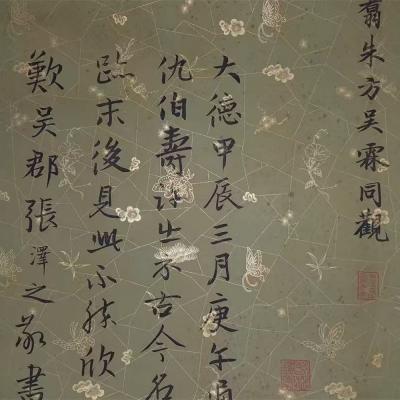 翥朱方吴霖同觀
大德甲辰三月庚午
仇伯壽父出示古今名
臨末後見此不勝欣
歎吴郡張澤之敬書